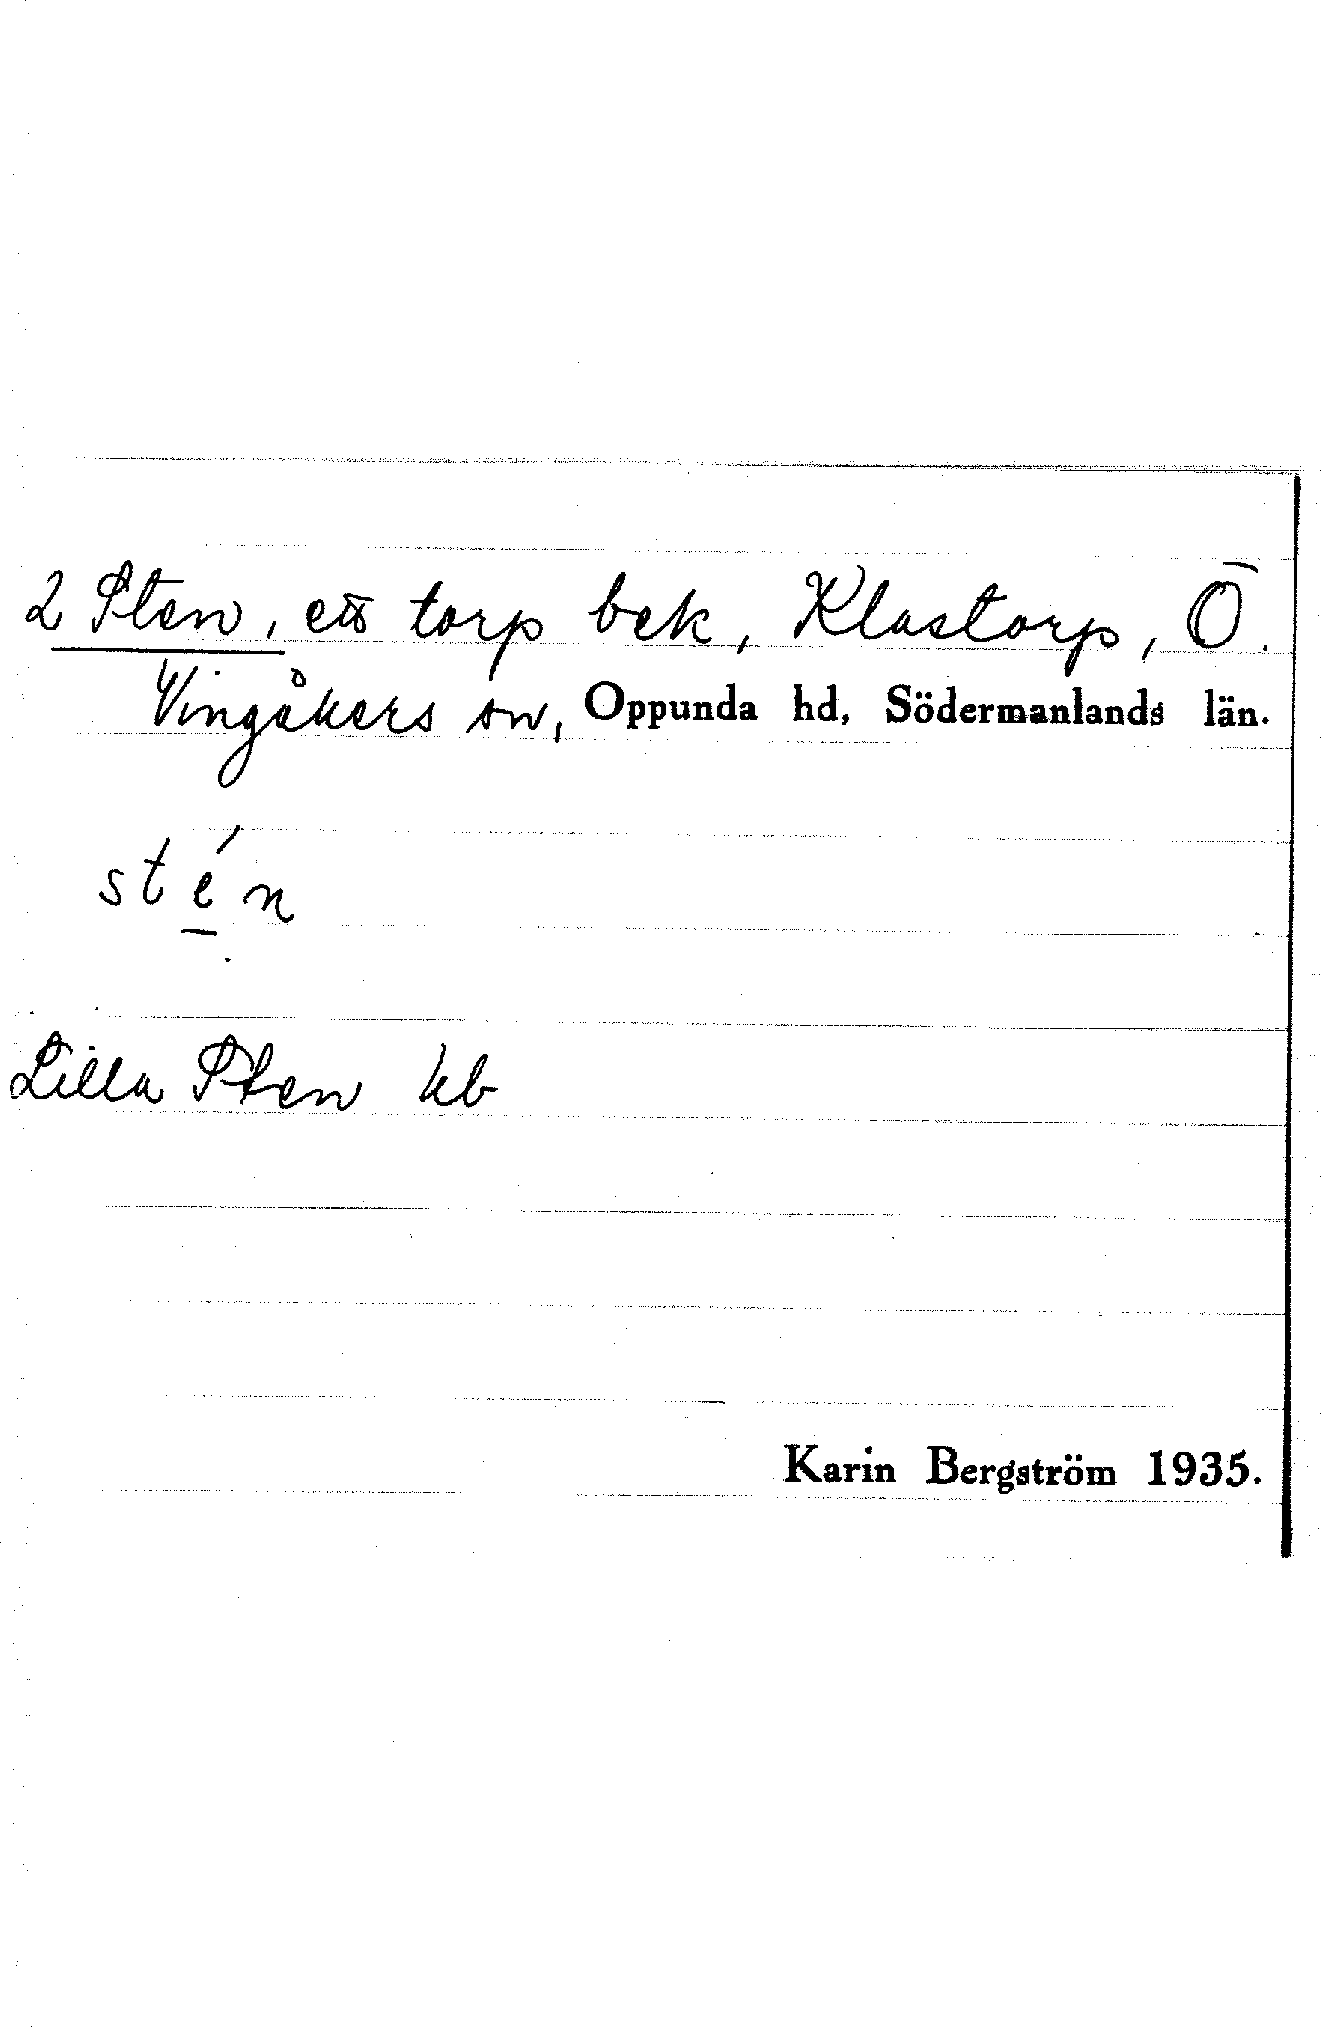 2 Sten, ett torp bek, Klastorp, Ö.
Vingåkers sn, Oppunda hd, Södermanlands län.
stén
Lilla Sten kb
Karin Bergström 1935.